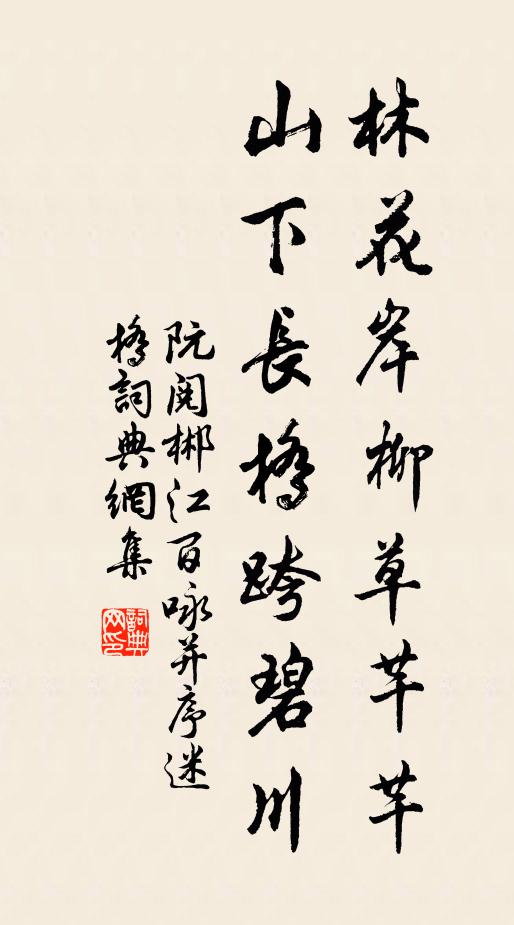 林花岸柳草芊芊
山下長橋跨碧川
阮閱郴江百咏并序迷
橋詞典網集
詞典網印